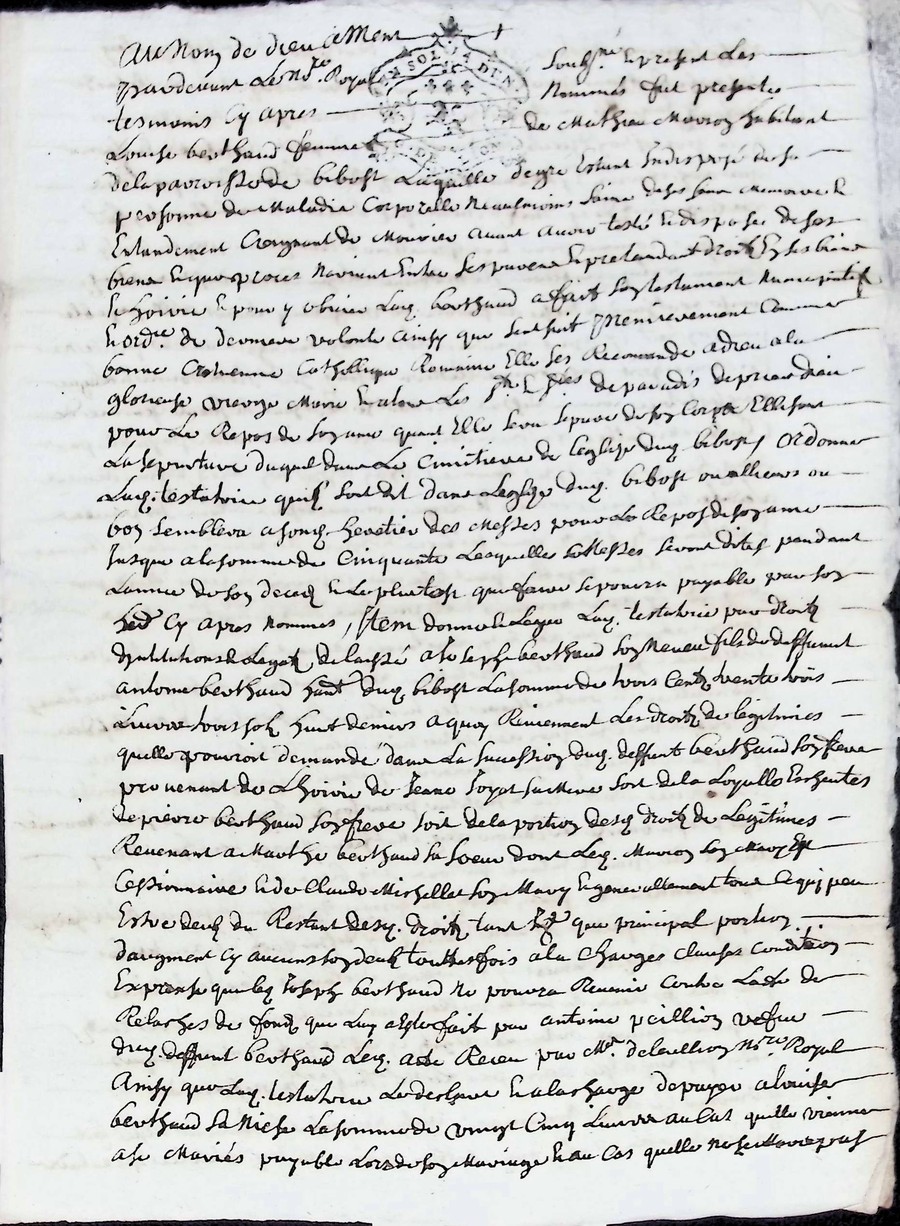 Au Nom de dieu amen
Pardevant Le No.re Royal soubs.né Et present Les
tesmoins Cy apres Nommés fut presente
Louise berthaud femme de Mathieu Mavion habitant
de la parroisse de bibost Laquelle de gre Estant Indisposé de sa
personne de Maladie Corporelle Neaulmoins Saine de ses sens Memoire et
Entandement Creignant de Mourir avant avoir testé et disposer de ses
biens et que proces Navient Entre Ses parens et pretandant droitz En ses biens
et hoirie et pour y obvier Laq. berthaud a fait Son testament Nuncupatif
et ord.re de derniere volonte Ainsy que Sensuit Premierement Comme
bonne Cretienne Catholique Romaine Elle ses Recomande a dieu a la
glorieuse vierge Marie Et a tous Les S.ts Et S.tes de paradis de prier dieu
pour Le Repos de Son ame quant Elle sera Separee de son Corps Ellisant
La sepulture duquel dans Le Cimitiere de leglize dud. bibost, ordonne
Lad. testatrice quil soit dit dans Leglize dud. bibost ou allieurs ou
bon semblera a sond. heretier des Messes pour Le Repos de son ame
Jusque a la somme de Cinquante Lesquelles Messes seront dites pendant
Lannee de son deced et Le plustost que faire se pourra payable par son
hed. Cy apres nommes, Item donne et Legue Lad. testatrice par droitz
dinstitution et Legatz delaissé a Joseph berthaud son Neveu fils de deffunt
antoine berthaud hant dud. bibost La somme de trois Centz trente trois
Livres trois solz huit deniers a quoy Reviennent Les droitz de legitimes
quelle pouroit demandé dans La succession dud. deffunt berthaud son frere
provenant de Lhoirie de Jeane Joyat sa Mere soit de la Loyalle Escheutes
de pierre berthaud son frere soit de la portion desd. droitz de Legitimes
Revenant a Marthe berthaud sa soeur dont Led. Mavion son Mary Est
Cessionnaire et de Claude Michellat son Mary Et generallement tout Ce qui peu
Estre deub du Restant desd. droitz tant que principal portion
daugment Cy aucuns son deub touttesfois a la Charges Clauses Condition
Expresse que led. Joseph berthaud ne pourra Revenir Contre Lacte de
Relaches de fondz que Luy a Este fait par antoine peillion vefve
dud. deffunt berthaud Led. acte Receu par M.e No.re Royal
Ainsy que Lad. testatrice Le desclare et a la charge de payer a louise
berthaud sa Niese La somme de vingt Cinq Livres au Cas quelle vienne
a se Mariés payable Lors de son Mariage et au Cas quelle ne se Marie pas